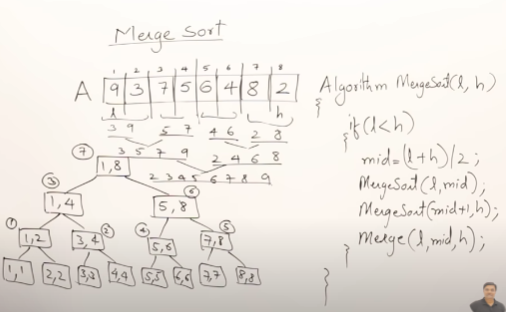 Merge Sort
1 2 3 4 5 6 7 8
A 9 3 7 5 6 4 8 2
l h
3 9 5 7 4 6 2 8
3 5 7 9 2 4 6 8
2 3 4 5 6 7 8 9
7 1,8
3 1,4 6 5,8
1 1,2 2 3,4 4 5,6 5 7,8
1,1 2,2 3,3 4,4 5,5 6,6 7,7 8,8
Algorithm MergeSort(l, h)
{
if(l<h)
{
mid=(l+h)/2;
MergeSort(l,mid);
MergeSort(mid+1,h);
Merge(l,mid,h);
}
}